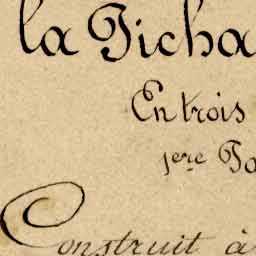 la Picha
En trois
1ere Pa
Construit à